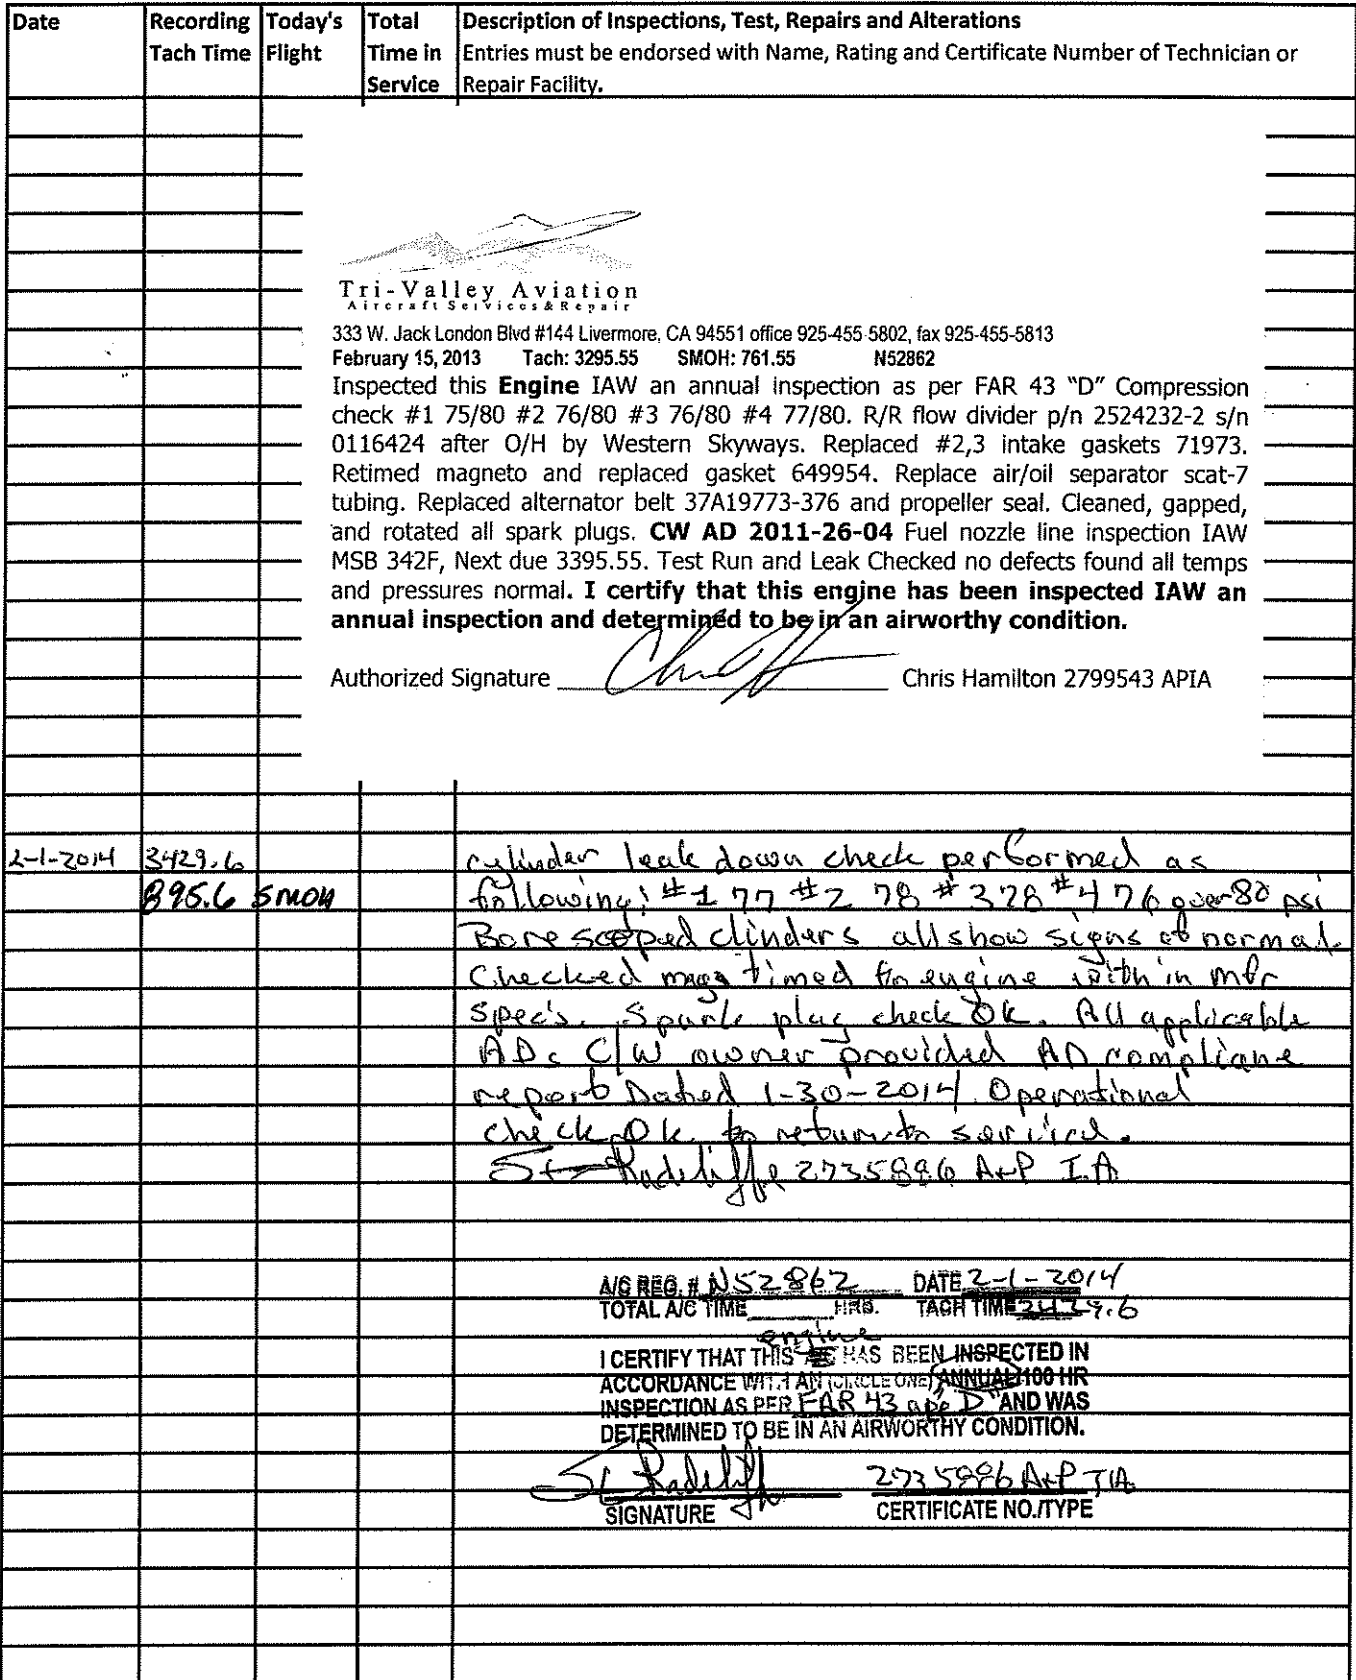 Date Recording Tach Time Today's Flight Total Time in Service Description of Inspections, Test, Repairs and Alterations
Entries must be endorsed with Name, Rating and Certificate Number of Technician or
Repair Facility.
Tri-Valley Aviation
Aircraft Services & Repair
333 W. Jack London Blvd #144 Livermore, CA 94551 office 925-455-5802, fax 925-455-5813
February 15, 2013 Tach: 3295.55 SMOH: 761.55 N52862
Inspected this Engine IAW an annual inspection as per FAR 43 "D" Compression
check #1 75/80 #2 76/80 #3 76/80 #4 77/80. R/R flow divider p/n 2524232-2 s/n
0116424 after O/H by Western Skyways. Replaced #2,3 intake gaskets 71973.
Retimed magneto and replaced gasket 649954. Replace air/oil separator scat-7
tubing. Replaced alternator belt 37A19773-376 and propeller seal. Cleaned, gapped,
and rotated all spark plugs. CW AD 2011-26-04 Fuel nozzle line inspection IAW
MSB 342F, Next due 3395.55. Test Run and Leak Checked no defects found all temps
and pressures normal. I certify that this engine has been inspected IAW an
annual inspection and determined to be in an airworthy condition.
Authorized Signature Chris Hamilton 2799543 APIA
2-1-2014 3429.6 cylinder leak down check performed as
895.6 SMOH following: #1 77 #2 78 #3 78 #4 76 over 80 psi
Bore scoped clinders all show signs of normal
Checked mags timed to engine with in mfr
spec's. Spark plug check OK. All applicable
ADs C/W owner provided AD compliane
report Dated 1-30-2014 Operational
check OK to return to service.
Radcliffe 2735886 A+P I.A
A/C REG. # N52862 DATE 2-1-2014
TOTAL A/C TIME HRS. TACH TIME
engine
I CERTIFY THAT THIS A/C HAS BEEN INSPECTED IN
ACCORDANCE WITH AN (CIRCLE ONE) ANNUAL/100 HR
INSPECTION AS PER FAR 43 app D" AND WAS
DETERMINED TO BE IN AN AIRWORTHY CONDITION.
Radcliffe 2735886 A+P IA
SIGNATURE CERTIFICATE NO./TYPE